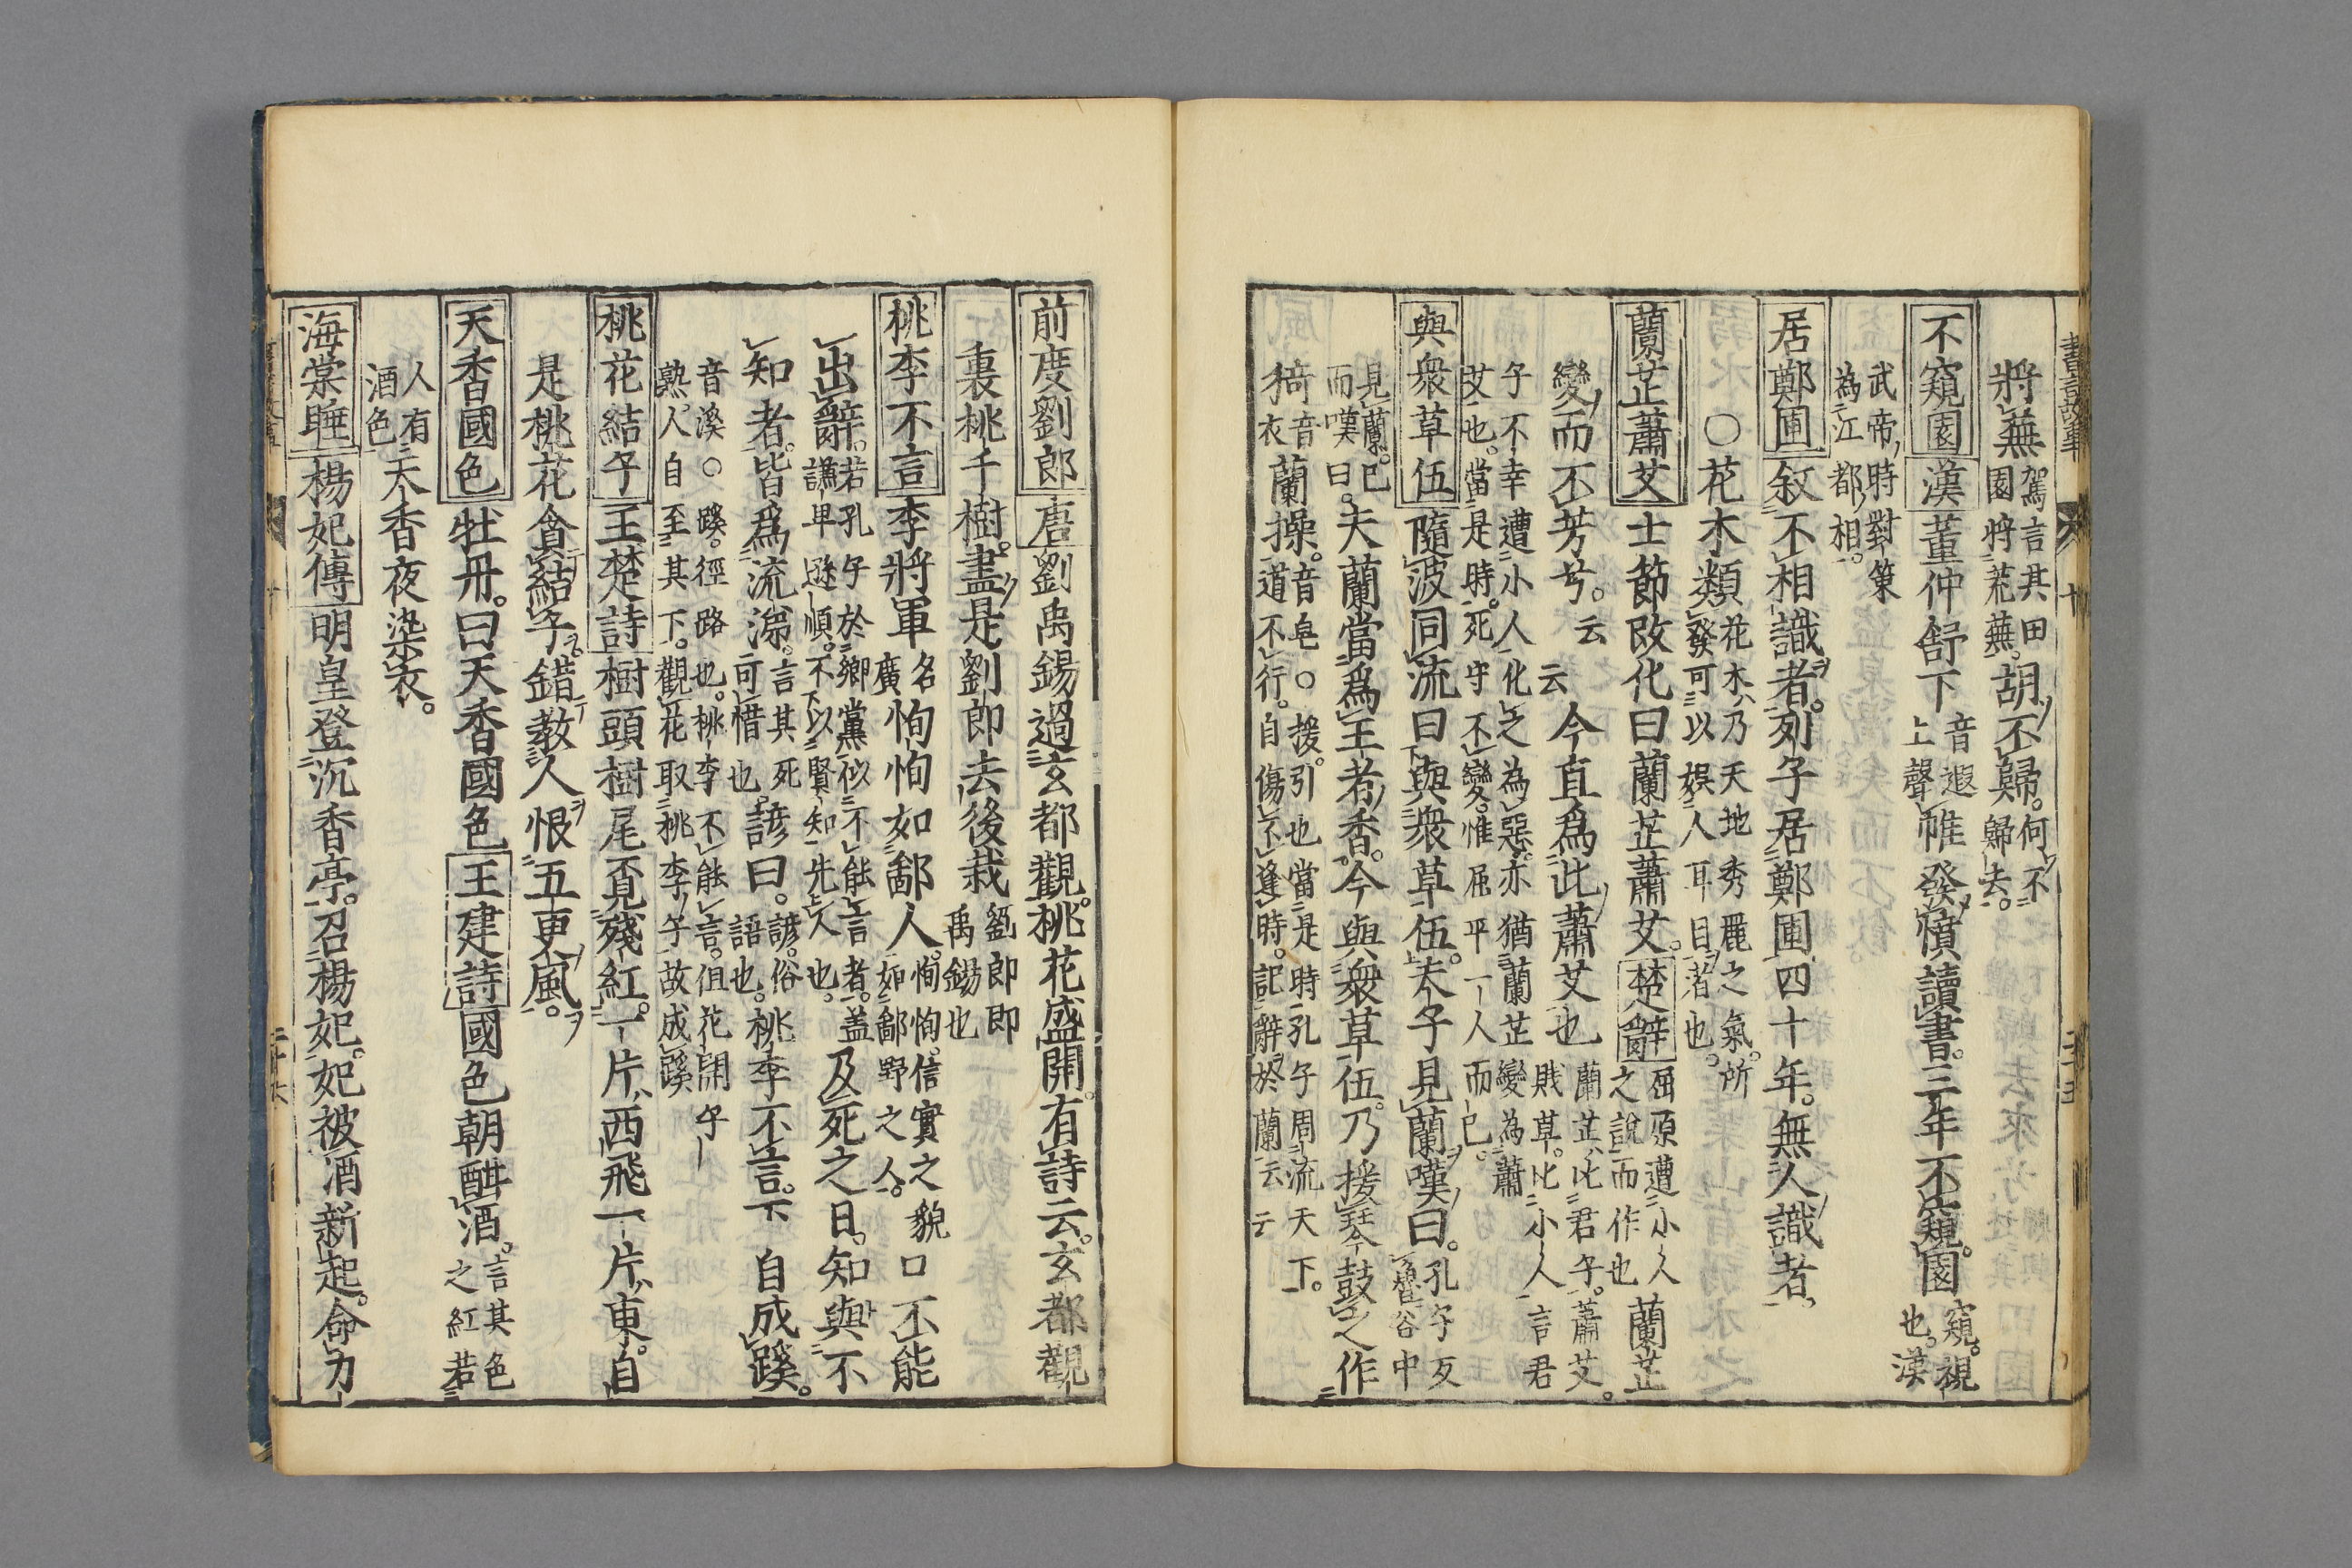 將蕪駕言其田園將荒蕪胡不歸何不歸去
不窺園漢董仲舒下音遐上聲帷發憤讀書三年不窺園窺視也漢
武帝時對策為江都相
居鄭圃敘不相識者列子居鄭圃四十年無人識者
○花木類花木乃天地秀麗之氣所發可以娯人耳目者也
蘭芷蕭艾士節改化曰蘭芷蕭艾楚辭屈原遭小人之說而作也蘭芷
變而不芳兮云云今直為此蕭艾也蘭芷比君子蕭艾賎草比小人言君
子不幸遭小人化之為惡亦猶蘭芷變為蕭艾也當是時死守不變惟屈平一人而已
與衆草伍隨波同流曰與衆草伍夫子見蘭嘆曰孔子反魯谷中
見蘭而嘆曰夫蘭當為王者香今與衆草伍乃援琴鼓之作
猗音衣蘭操音皂○援引也當是時孔子周流天下道不行自傷不逢時記辭於蘭云云
前度劉郎唐劉禹錫過玄都觀桃花盛開有詩云玄都觀
裏桃千樹盡是劉郎去後栽劉郎即禹錫也
桃李不言李將軍名廣恂恂如鄙人恂恂信實之貌如鄙野之人口不能
出辭若孔子於鄉黨似不能言者蓋謙卑遜順不以賢知先人也及死之日知與不
知者皆為流涕言其死可惜也諺曰諺俗語也桃李不言下自成蹊
音溪○蹊徑路也桃李不能言但花開子熟人自至其下觀花取桃李子故成蹊
桃花結子王楚詩樹頭樹尾覔殘紅一片西飛一片東自
是桃花貪結子錯教人恨五更風
天香國色牡丹曰天香國色王建詩國色朝酣酒言其色之紅若
人有酒色天香夜染衣
海棠睡楊妃傳明皇登沉香亭召楊妃妃被酒新起命力